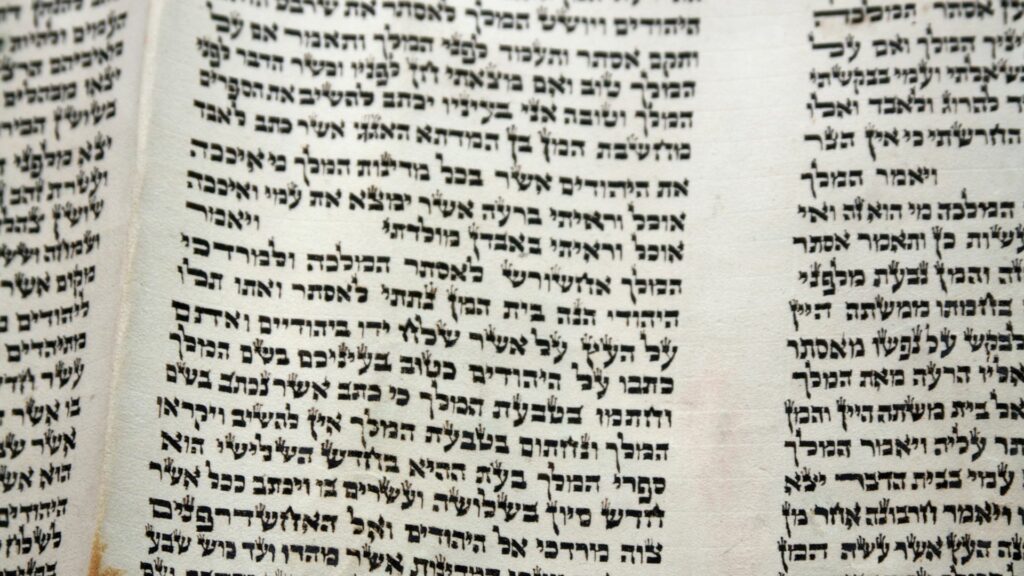 אסתר המלכה
המלך ואם על
ועמי בבקשתי
להרוג ולאבד ואלו
החרשתי כי אין הצר
ויאמר המלך
המלכה מי הוא זה ואי
כן ותאמר אסתר
והמן נבעת מלפני
בחמתו ממשתה היין
לבקש על נפשו מאסתר
אליו הרעה מאת המלך
אל בית משתה היין והמן
עליה ויאמר המלך
עמי בבית הדבר יצא
ויאמר חרבונה אחד מן
העץ אשר עשה המן
היהודים ויושט המלך לאסתר את שרבט
ותקם אסתר ותעמוד לפני המלך ותאמר אם על
המלך טוב ואם מצאתי חן לפניו וכשר הדבר לפני
המלך וטובה אני בעיניו יכתב להשיב את הספרים
מחשבת המן בן המדתא האגגי אשר כתב לאבד
את היהודים אשר בכל מדינות המלך כי איככה
אוכל וראיתי ברעה אשר ימצא את עמי ואיככה
אוכל וראיתי באבדן מולדתי ויאמר
המלך אחשורש לאסתר המלכה ולמרדכי
היהודי הנה בית המן נתתי לאסתר ואתו תלו
על העץ על אשר שלח ידו ביהודיים ואתם
כתבו על היהודים כטוב בעיניכם בשם המלך
וחתמו בטבעת המלך כי כתב אשר נכתב בשם
המלך ונחתום בטבעת המלך אין להשיב ויקראו
ספרי המלך בעת ההיא בחדש השלישי הוא
חדש סיון בשלושה ועשרים בו ויכתב ככל אשר
צוה מרדכי אל היהודים ואל האחשדרפנים
המדינות אשר מהדו ועד כוש שבע
העמים ולהיות
מאיביהם
יצאו מבהלים
בשושן
יצא מלפני
ועטרת זהב
שושן צהלה
ושמחה
מקום אשר
ליהודים
מתיהדים
עשר
בו אשר
אשר
הוא אשר
היהודים
לשלח